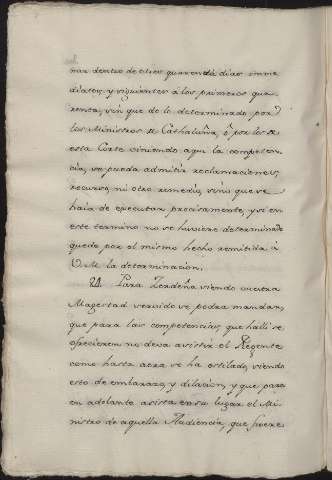 nar dentro de otros quarenta dias imme
diatos, y siguientes â los primeros qua
renta, sin que de lo determinado por
los Ministros de Cathaluña, ô por los de
esta Corte viniendo aqui la competen
cia, se pueda admitir reclamaciones,
recurso, ni otro remedio, sino que se
haia de executar precisamente, y si en
este termino no se huviere determinado
quede por el mismo hecho remitida â
V. M. la determinacion.
24. Para Zerdeña siendo vuestra
Magestad servido se podra mandar,
que para las competencias, que halli se
ofrecieren no deva asistir el Regente
como hasta aora se ha estilado, siendo
esto de embarazo, y dilacion, y que para
en adelante asista en su lugar el Mi
nistro de aquella Audiencia, que fuere